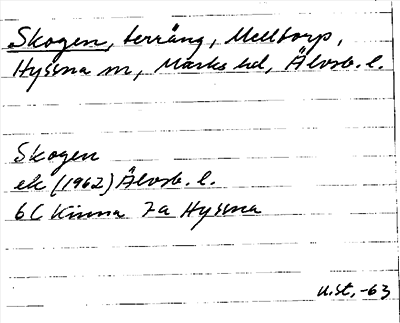 Skogen, terräng, Melltorp,
Hyssna m, Marks hd, Älvsb. l.
Skogen
ek (1962) Älvsb. l.
6 C Kinna 7a Hyssna
U.St. -63